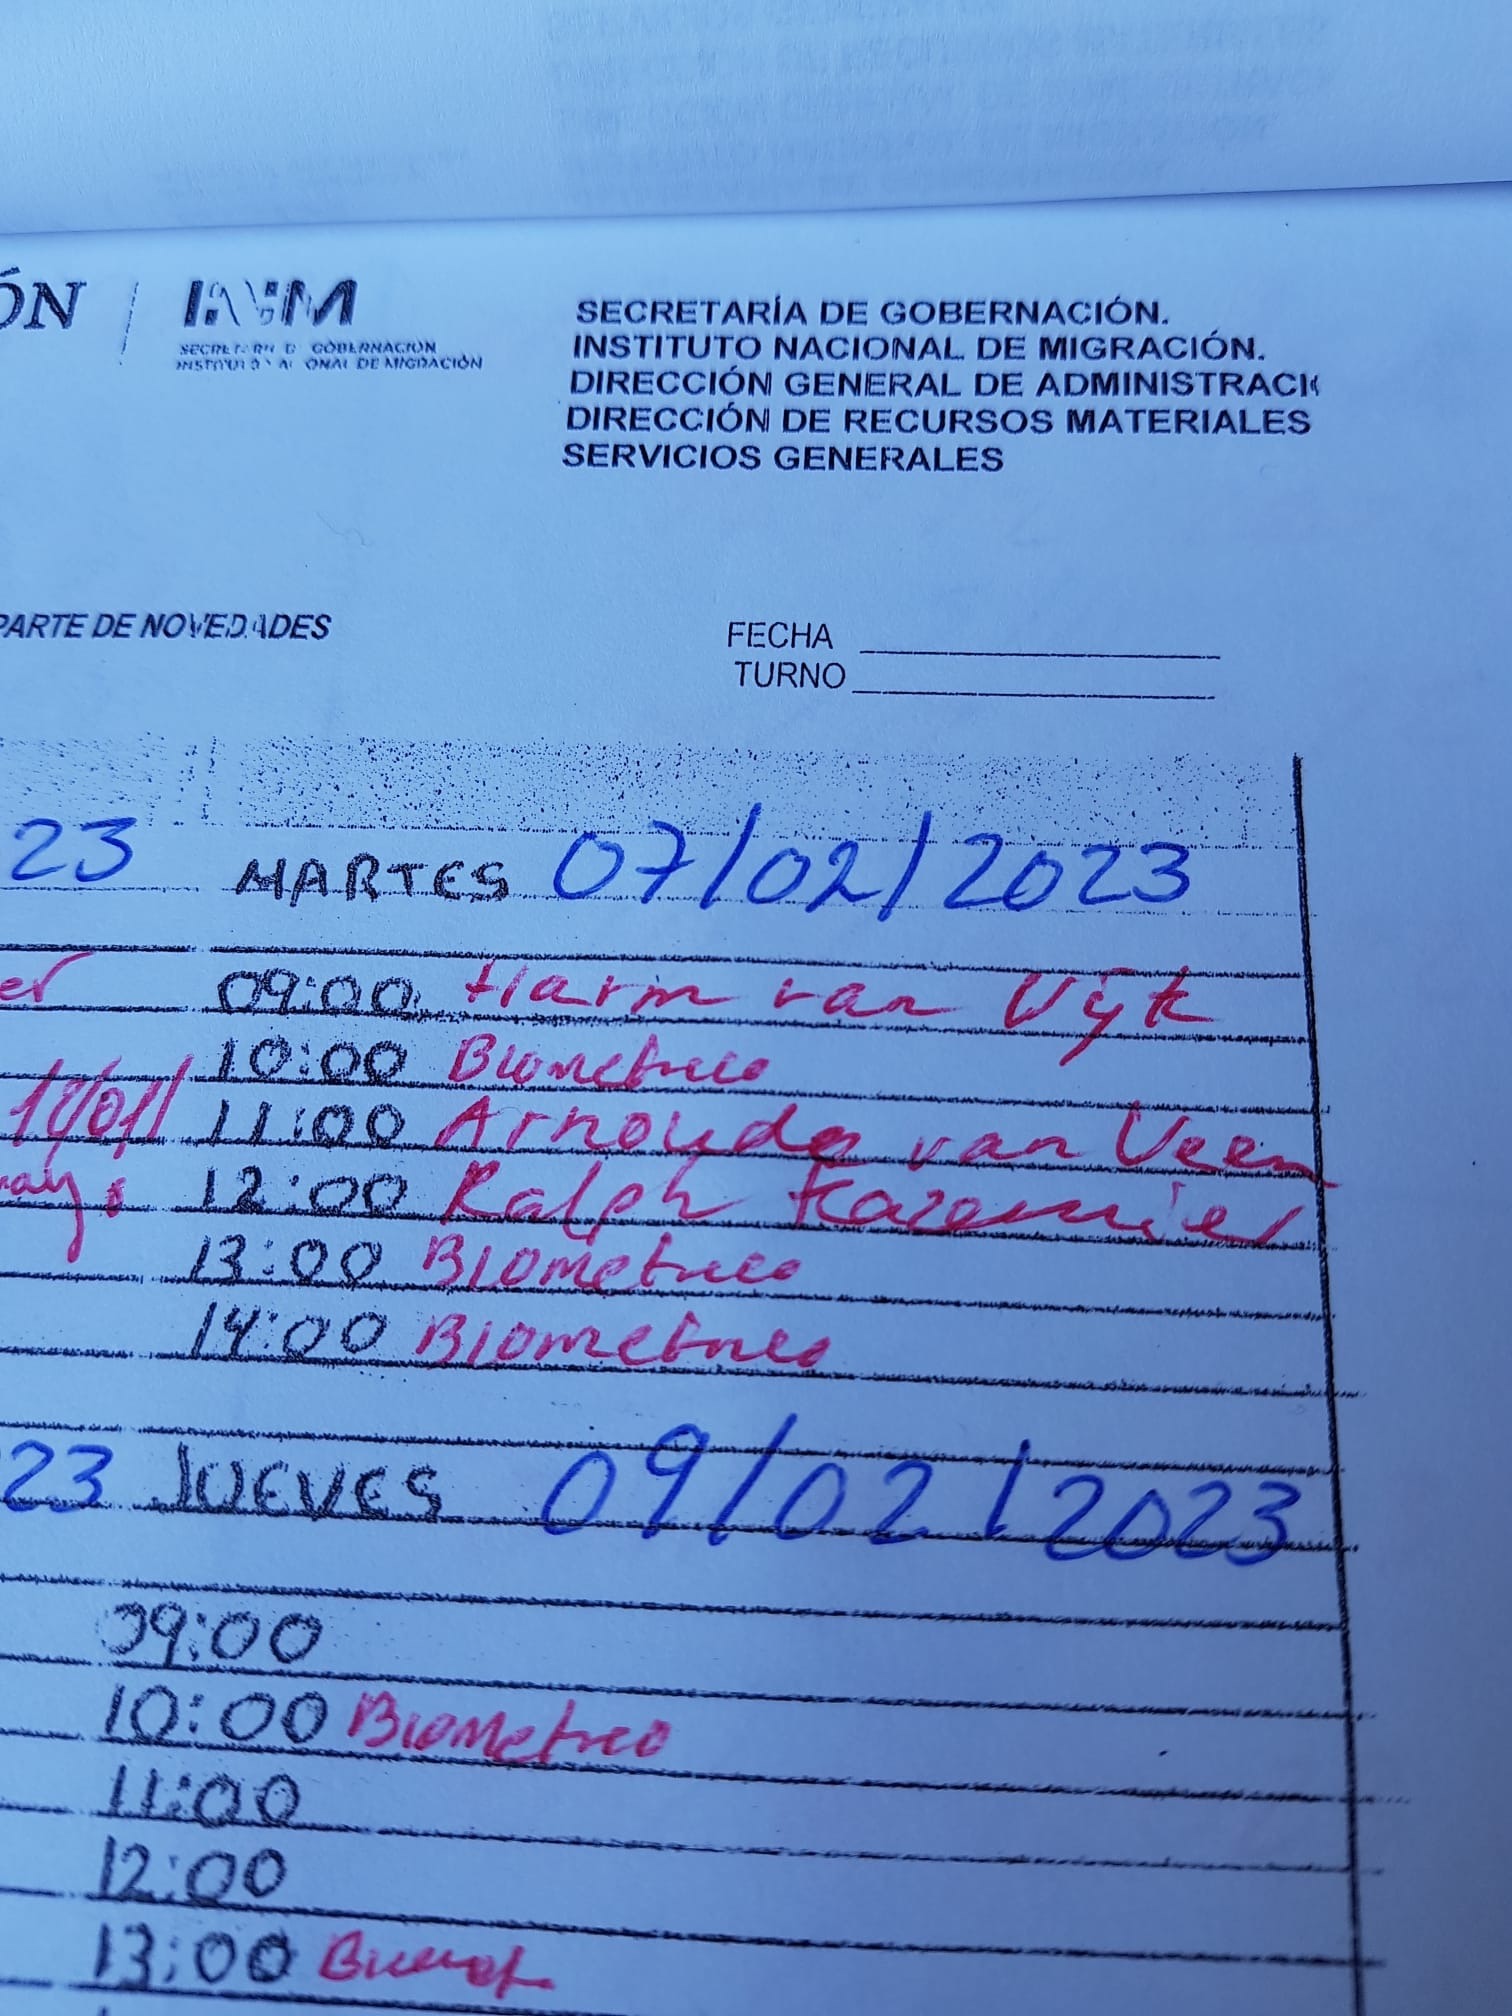 ÓN
INM
SECRETARÍA DE GOBERNACIÓN
INSTITUTO NACIONAL DE MIGRACIÓN
SECRETARÍA DE GOBERNACIÓN.
INSTITUTO NACIONAL DE MIGRACIÓN.
DIRECCIÓN GENERAL DE ADMINISTRACI
DIRECCIÓN DE RECURSOS MATERIALES
SERVICIOS GENERALES
PARTE DE NOVEDADES
FECHA
TURNO
23 MARTES 07/02/2023
er 09:00 Harm van Wijk
10:00 Biometrico
11:00 van Veen
12:00 Ralph Kazemier
13:00 Biometrico
14:00 Biometrico
23 JUEVES 09/02/2023
09:00
10:00 Biometrico
11:00
12:00
13:00